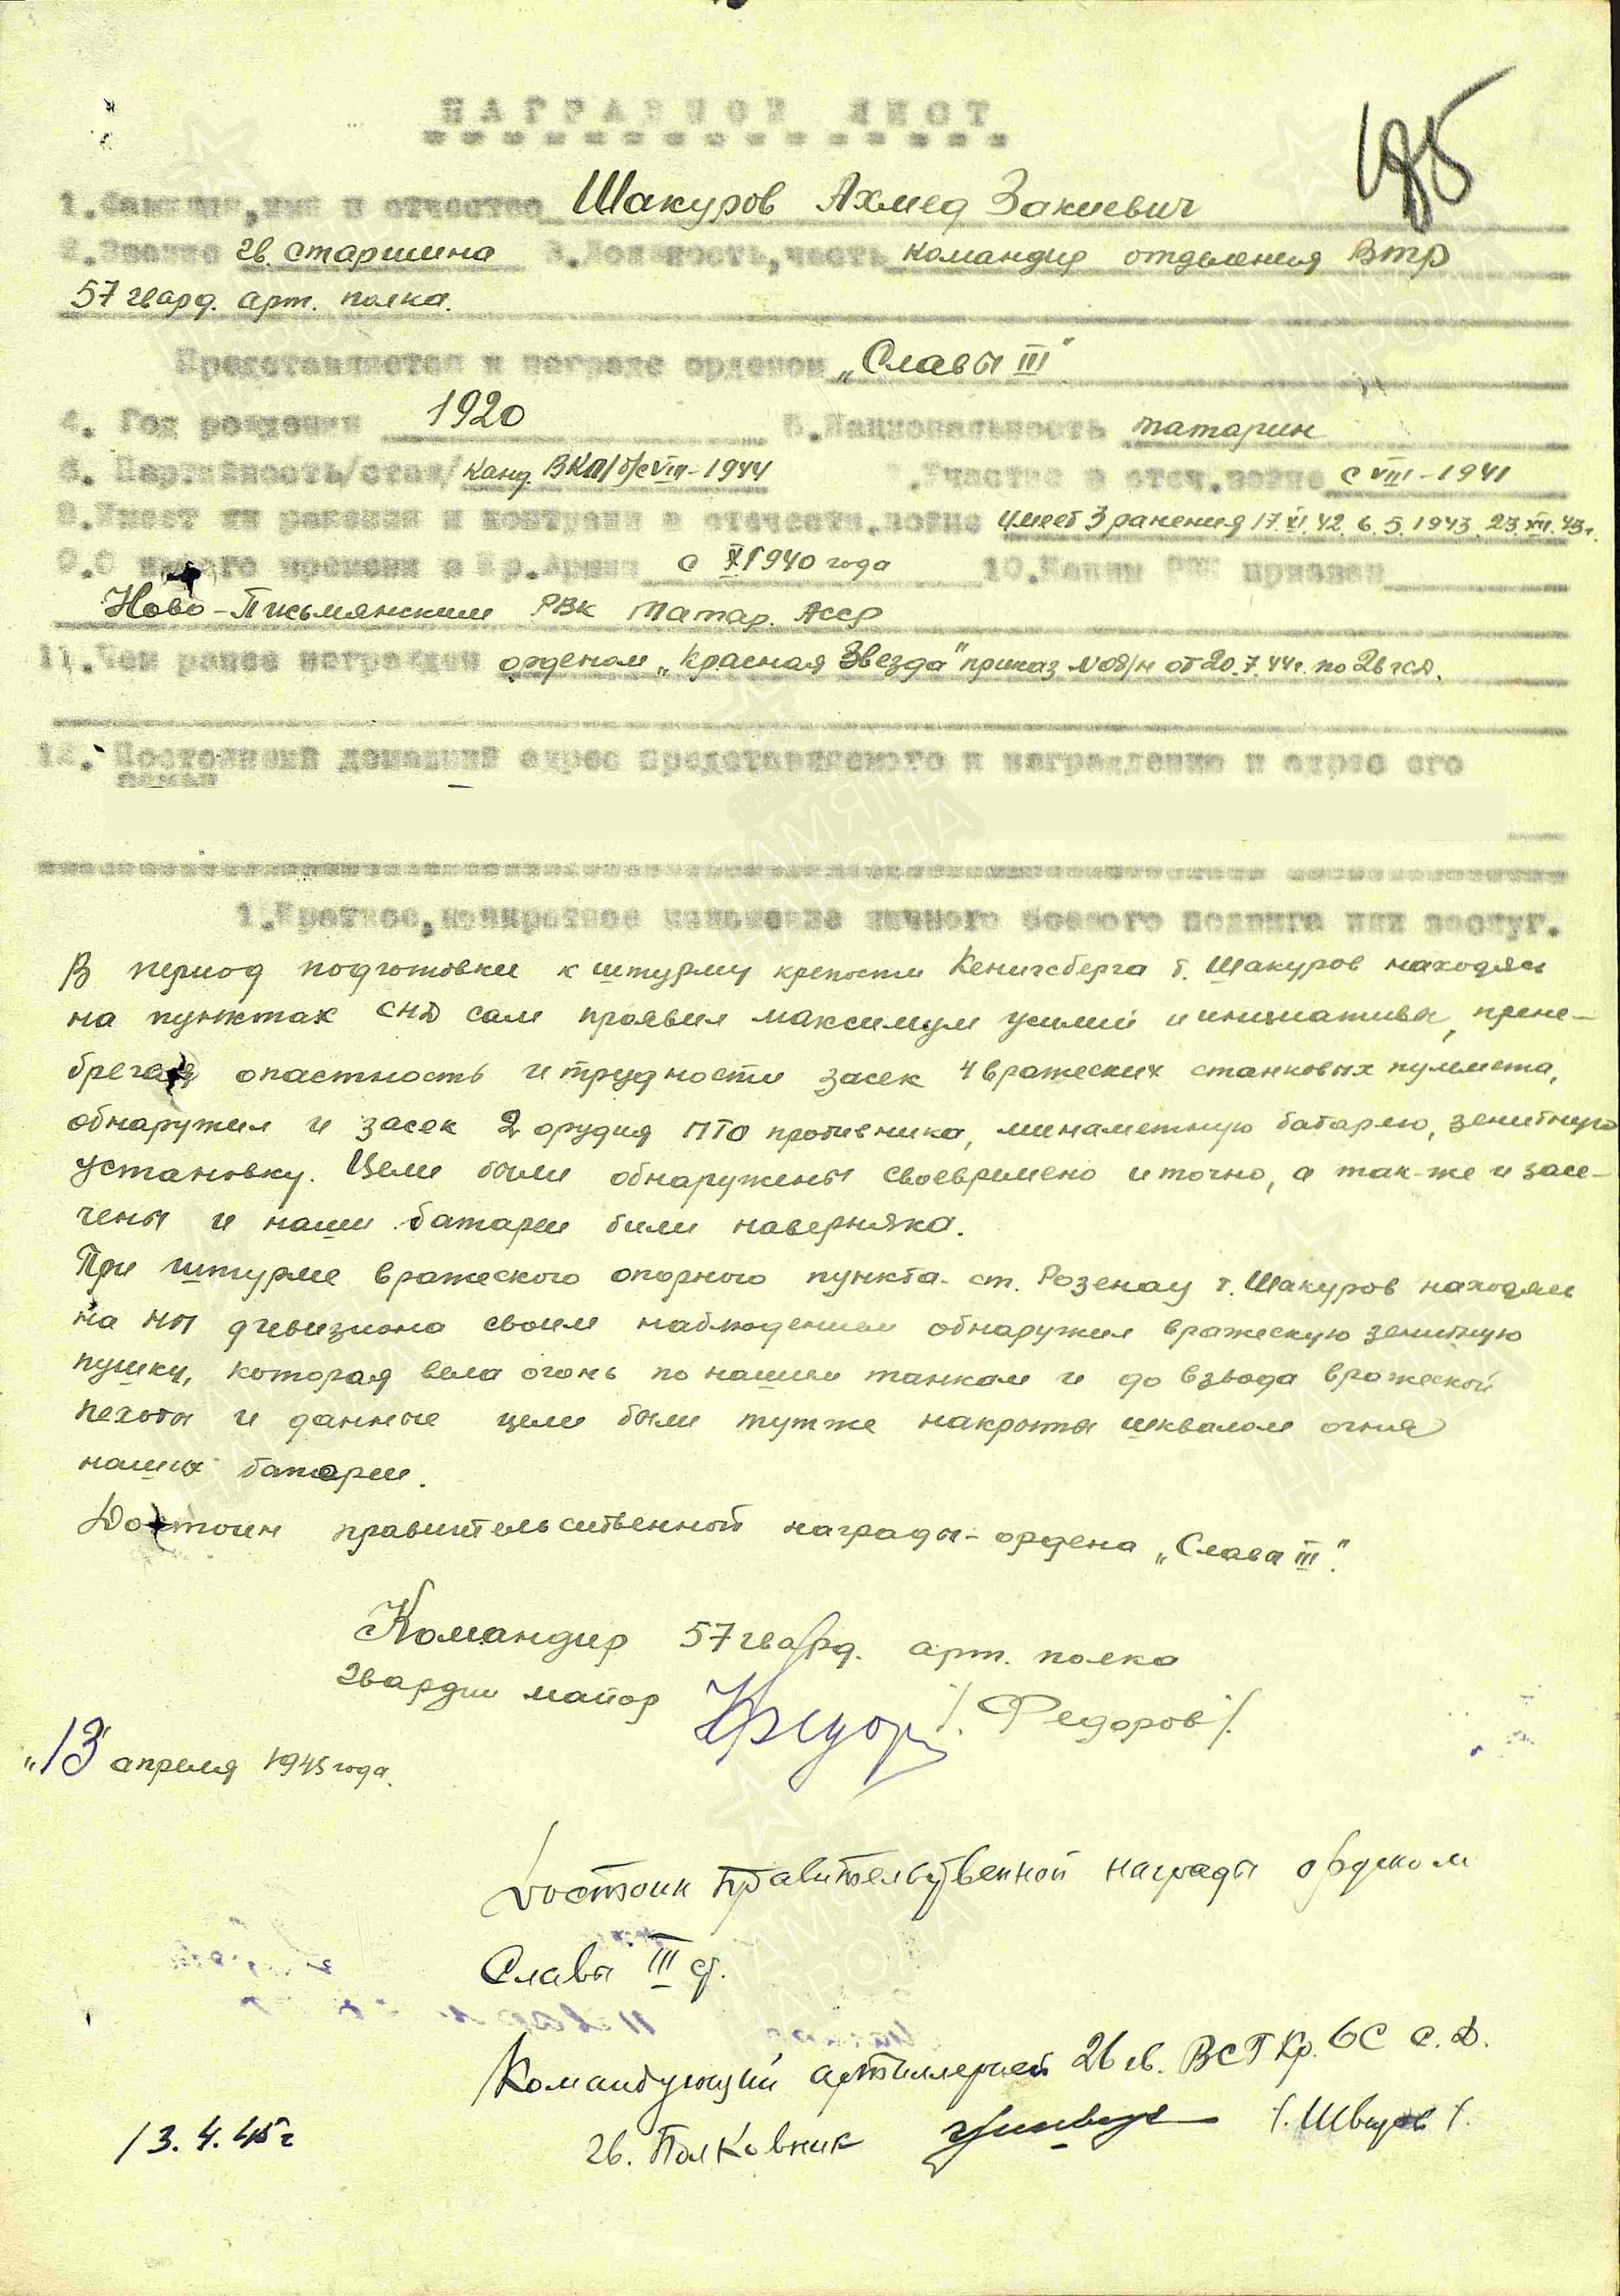 НАГРАДНОЙ ЛИСТ
195
1.Фамилия,имя и отчество Шакуров Ахмед Закиевич
2.Звание гв. старшина 3.Должность,часть командир отделения Втр
57 гвард. арт. полка.
Представляется к награде орденом „Славы III"
4. Год рождения 1920 5.Национальность татарин
6. Партийность/стаж/ канд. ВКП/б/с VIII-1944 7.Участие в отеч.войне с VIII-1941
8.Имеет ли ранения и контузии в отечеств.войне имеет 3 ранения 17.XI.42. 6.5.1943. 23.XII.43г.
9.С какого времени в Кр.Армии с X 1940 года 10.Каким РВК призван
Ново-Письмянским РВК Татар. АССР
11.Чем ранее награжден орденом „Красная Звезда" приказ №08/н от 20.7.44г. по 26 гсд.
12. Постоянный домашний адрес представляемого к награждению и адрес его
семьи
1.Краткое,конкретное изложение личного боевого подвига или заслуг.
В период подготовки к штурму крепости Кенигсберга т. Шакуров находясь
на пунктах СНД сам проявил максимум усилий и инициативы, прене-
брегая опастность и трудности засек 4 вражеских станковых пулемета,
обнаружил и засек 2 орудия ПТО противника, минаметную батарею, зенитную
установку. Цели были обнаружены своевремено и точно, а так-же и засе-
чены и наши батареи били наверняка.
При штурме вражеского опорного пункта ст. Розенау т. Шакуров находясь
на НП дивизиона своим наблюдением обнаружил вражескую зенитную
пушку, которая вела огонь по нашим танкам и до взвода вражеской
пехоты и данные цели были тутже накрыты шквалом огня
наших батареи.
Достоин правительственной награды - ордена „Слава III".
Командир 57 гвард. арт. полка
гвардии майор /Федоров/.
„13" апреля 1945 года.
Достоин правительственной награды орденом
Славы III ст.
Командующий артиллерией 26 гв. ВСГКр. 6С С.Д.
13.4.45г гв. Полковник /.Швецов/.